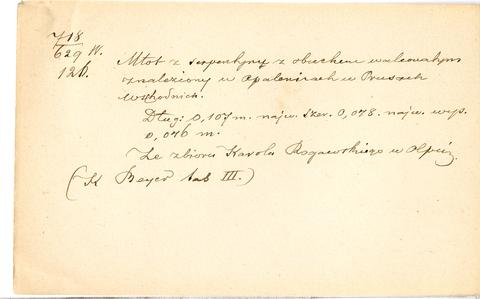 718
629 IV.
126.
Młot z serpentynu z obuchem walcowatym
znaleziony w Opalenicach w Prusach
Wschodnich.
Dług: 0,107 m. najw. szer. 0,078. najw. wys.
0,046 m.
Ze zbioru Karola Rogawskiego w Ołpin.
(K Beyer tab III.)